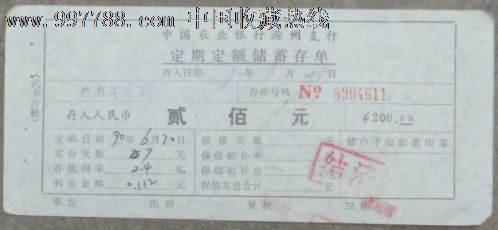 www.997788.com 中国收藏热线
中国农业银行滁州支行
定期定额储蓄存单
存入日期 90年6月 日
户名 存单号码 No 8904611
(代卡片帐)
存入人民币 贰佰元 ¥200.00
支取日期 90年6月30日 保值天数 储户予留取款印鉴
实存天数 27 天 保值贴补率
存款利率 2.4 ‰ 保值贴补息 元
利息金额 0.112 元 保值本息合计 元
结清
事监 出纳 复核 记帐